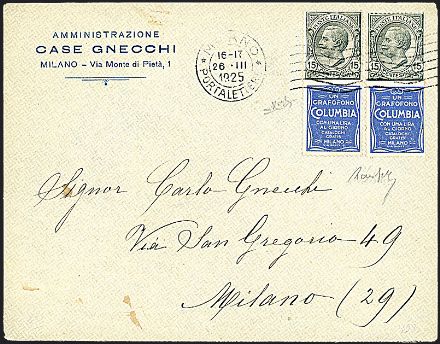 AMMINISTRAZIONE
CASE GNECCHI
MILANO - Via Monte di Pietà, 1
MILANO
16-17
26 · III
1925
PORTALETTERE
POSTE ITALIANE
15 15
POSTE ITALIANE
15 15
UN
GRAFOFONO
COLUMBIA
CON UNA LIRA
AL GIORNO
CATALOGHI
GRATIS
MILANO
UN
GRAFOFONO
COLUMBIA
CON UNA LIRA
AL GIORNO
CATALOGHI
GRATIS
MILANO
Signor Carlo Gnecchi
Via San Gregorio 49
Milano (29)